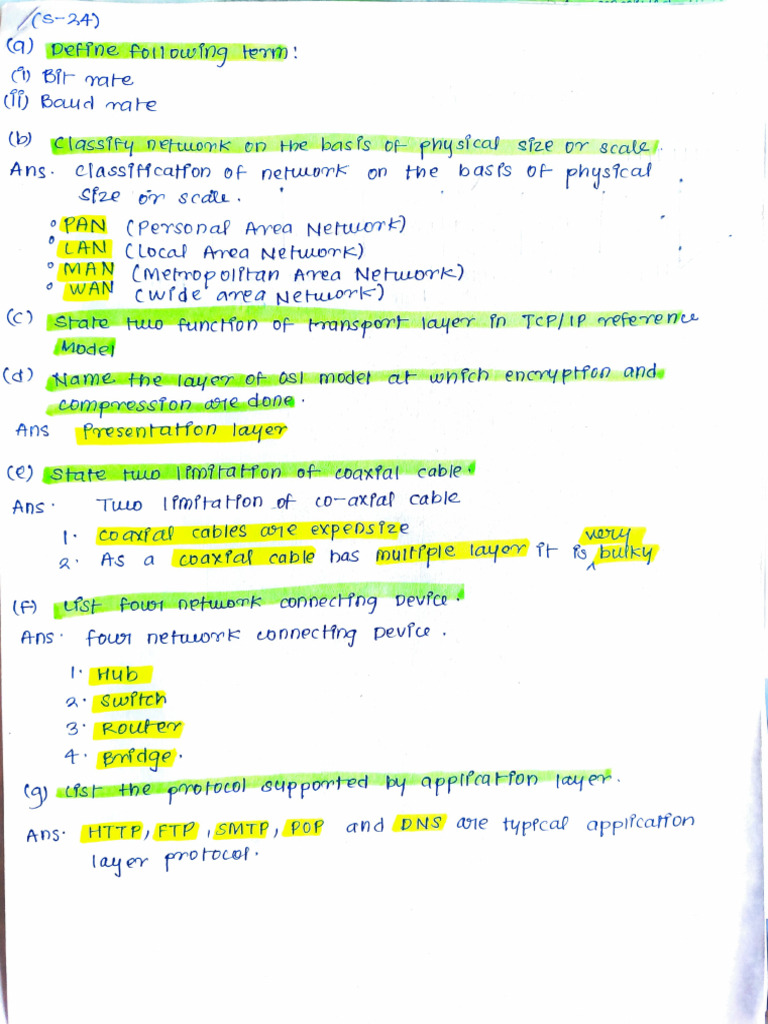 (S-24)
(a) Define following term:
(i) Bit rate
(ii) Baud rate
(b) Classify network on the basis of physical size or scale.
Ans. Classification of network on the basis of physical
size or scale.
° PAN (Personal Area Network)
° LAN (Local Area Network)
° MAN (Metropolitan Area Network)
° WAN (Wide area Network)
(c) State two function of transport layer in TCP/IP reference
Model
(d) Name the layer of OSI model at which encryption and
compression are done.
Ans Presentation layer
(e) State two limitation of coaxial cable.
Ans. Two limitation of co-axial cable
1. coaxial cables are expensize
2. As a coaxial cable has multiple layer it is very bulky
(f) List four network connecting Device.
Ans. four network connecting Device.
1. Hub
2. Switch
3. Router
4. Bridge.
(g) List the protocol supported by application layer.
Ans. HTTP, FTP, SMTP, POP and DNS are typical application
layer protocol.